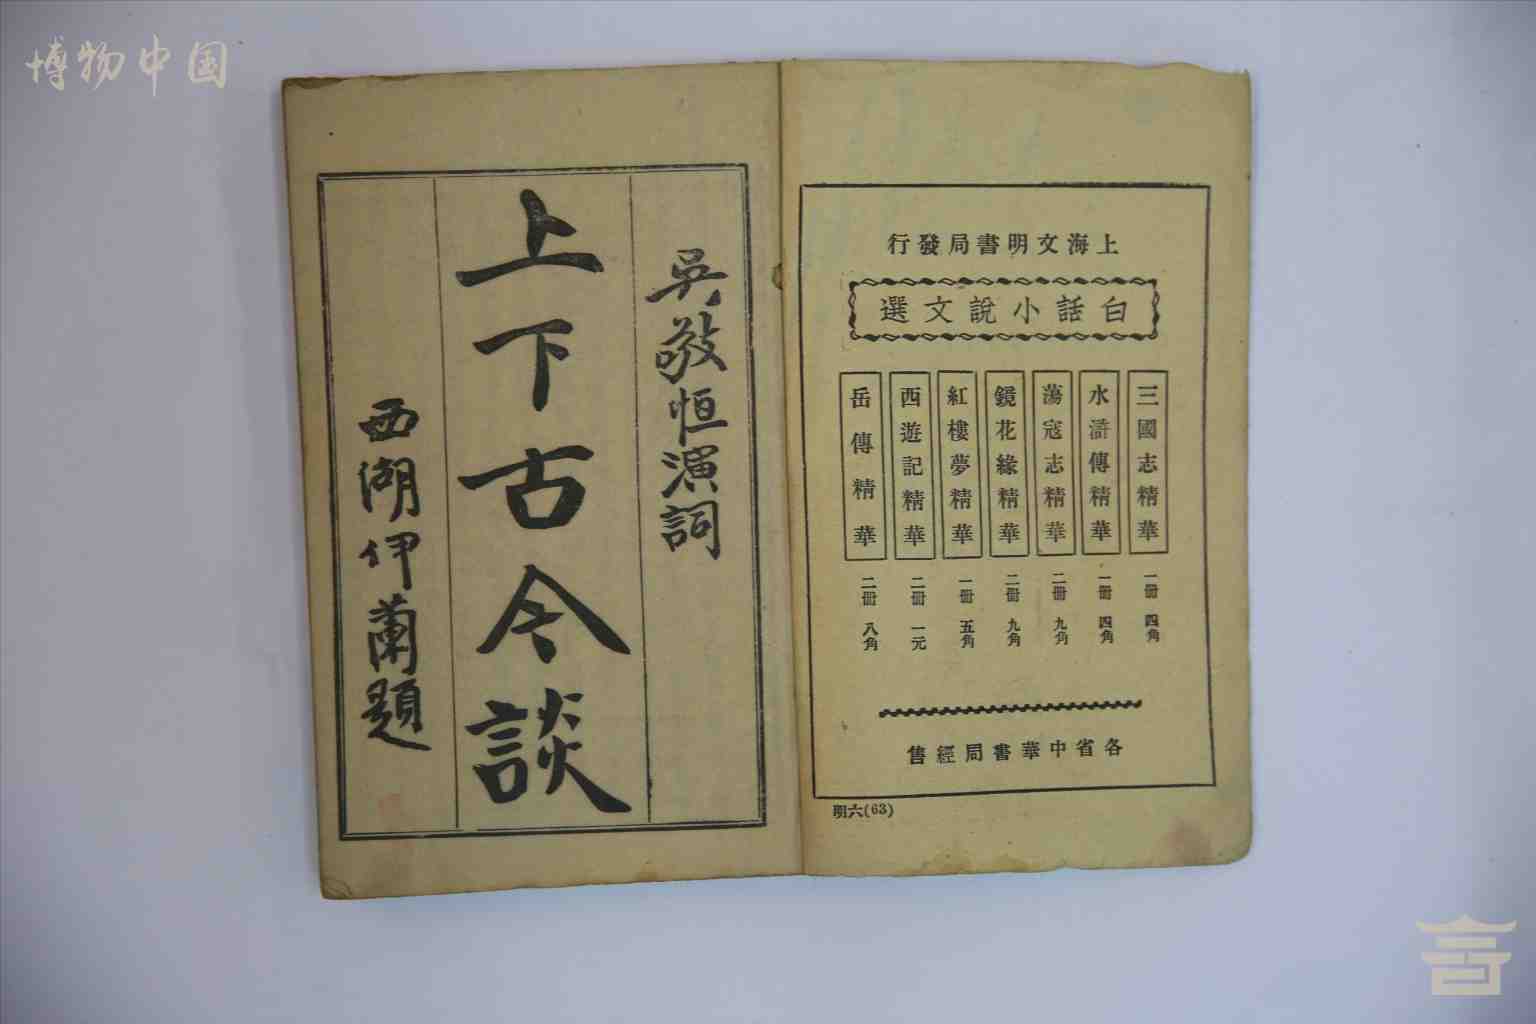 博物中国
上海文明書局發行
白話小說文選
三國志精華 一冊 四角
水滸傳精華 一冊 四角
蕩寇志精華 二冊 九角
鏡花緣精華 二冊 九角
紅樓夢精華 一冊 五角
西遊記精華 二冊 一元
岳傳精華 二冊 八角
各省中華書局經售
明六(63)
吳敬恒演詞
上下古今談
西湖伊蘭題